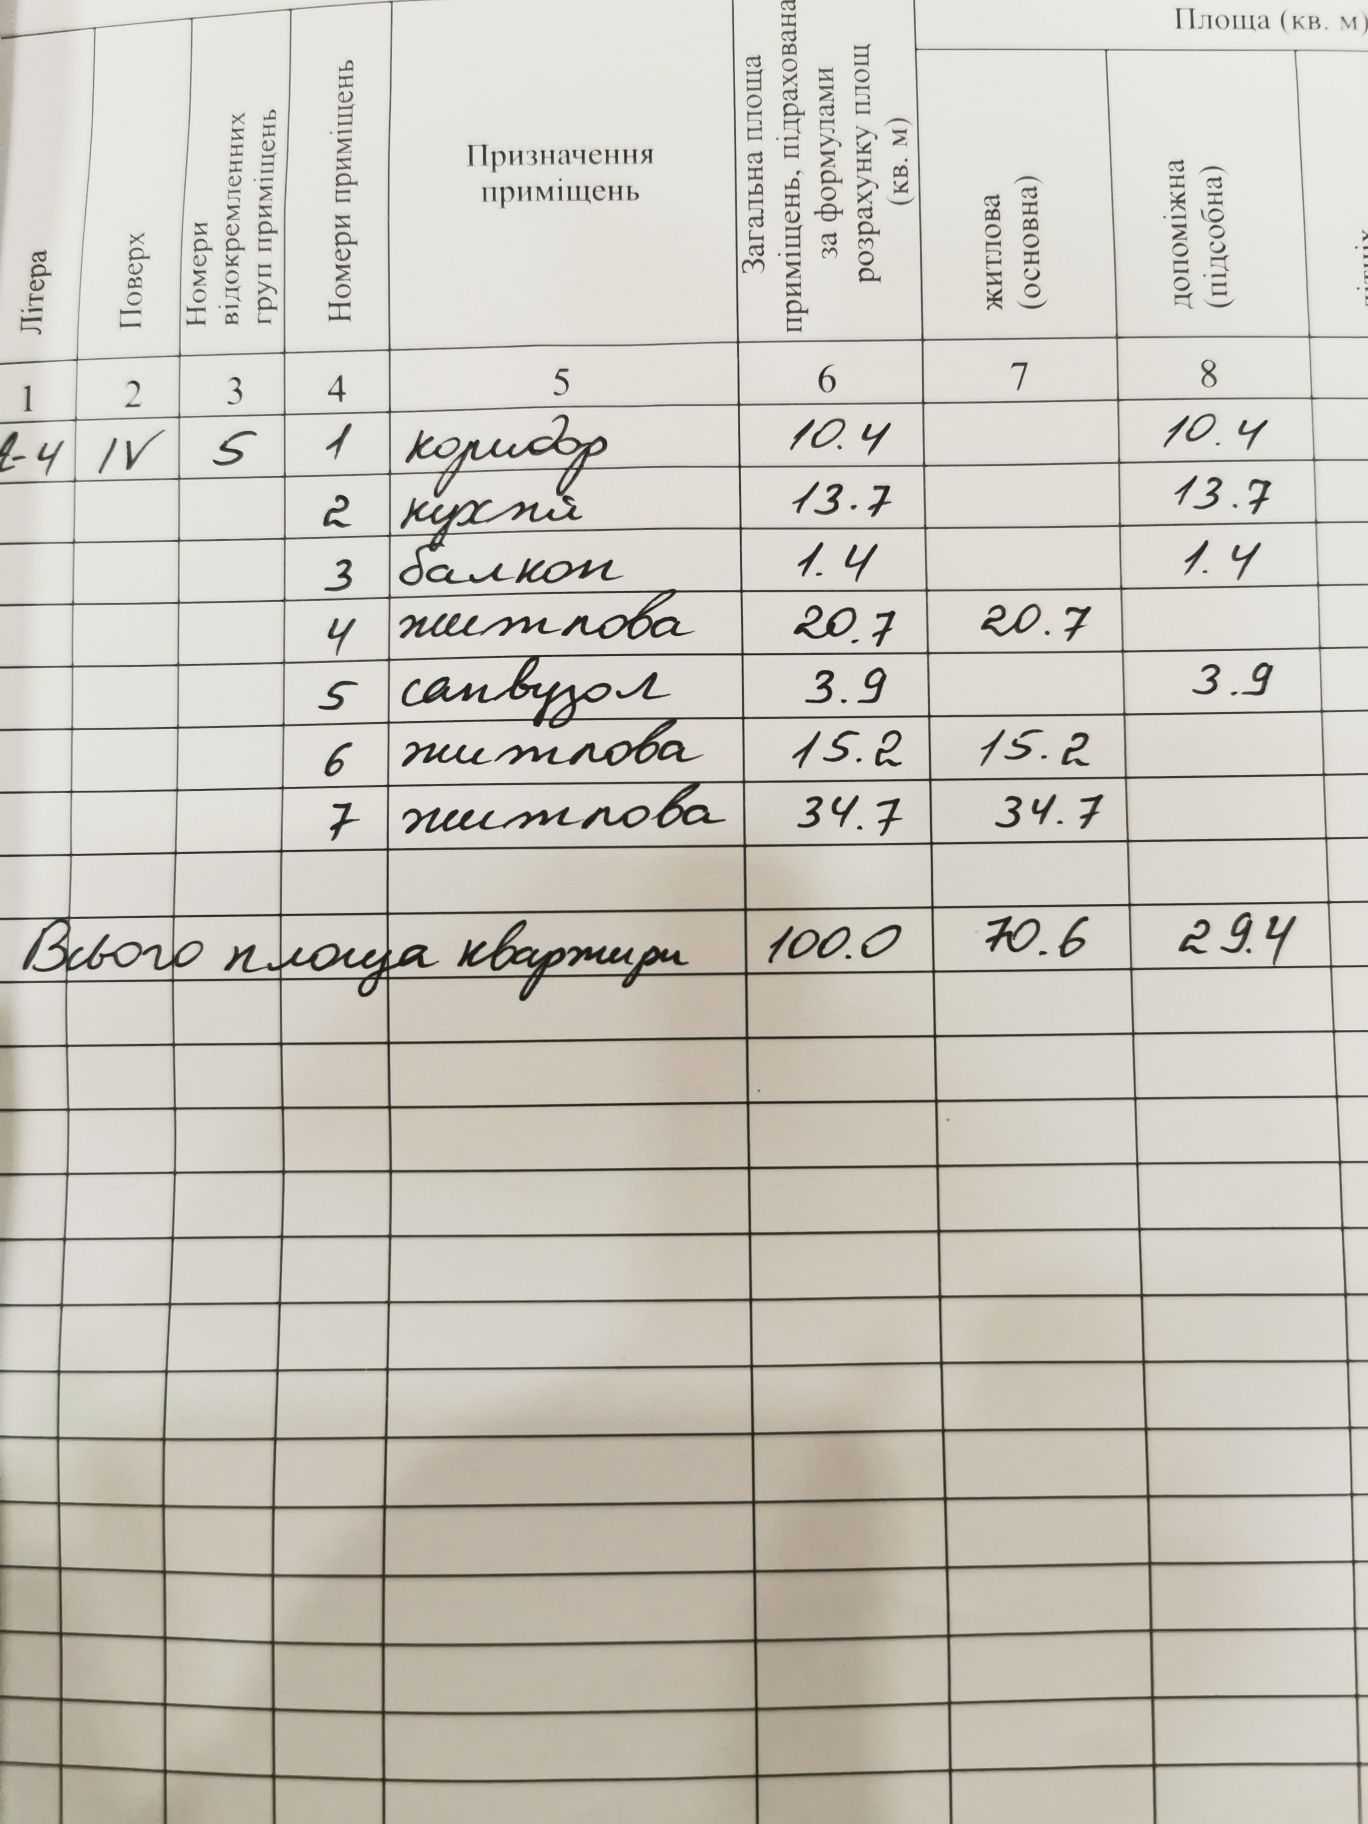 Площа (кв. м)
Літера
Поверх
Номери
відокремленних
груп приміщень
Номери приміщень
Призначення
приміщень
Загальна площа
приміщень, підрахована
за формулами
розрахунку площ
(кв. м)
житлова
(основна)
допоміжна
(підсобна)
1 2 3 4 5 6 7 8
-4 IV 5 1 коридор 10.4 10.4
2 кухня 13.7 13.7
3 балкон 1.4 1.4
4 житлова 20.7 20.7
5 санвузол 3.9 3.9
6 житлова 15.2 15.2
7 житлова 34.7 34.7
Всього площа квартири 100.0 70.6 29.4